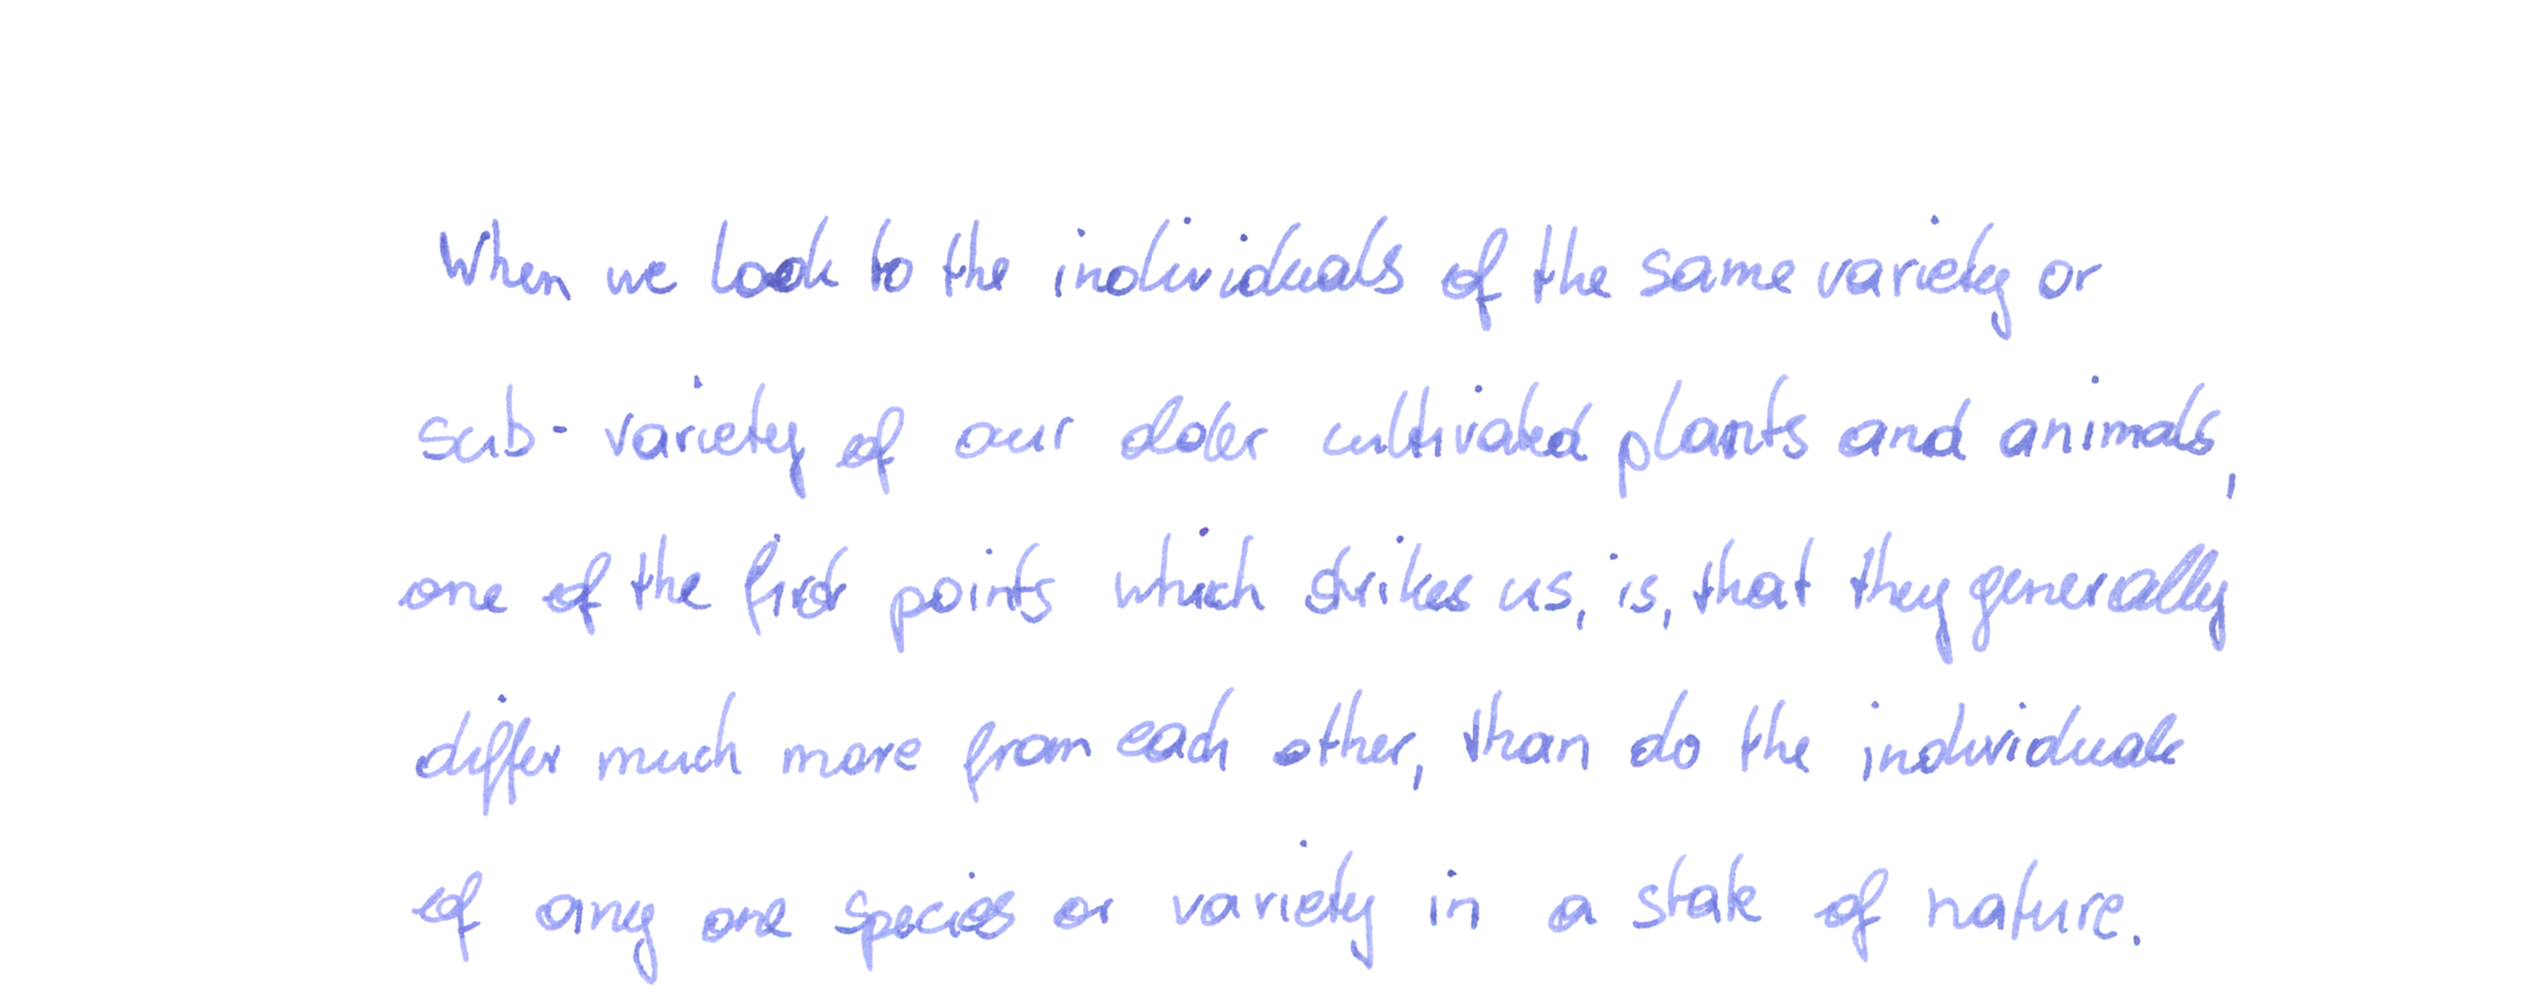 When we look to the individuals of the same variety or
sub-variety of our older cultivated plants and animals,
one of the first points which strikes us, is, that they generally
differ much more from each other, than do the individuals
of any one species or variety in a state of nature.